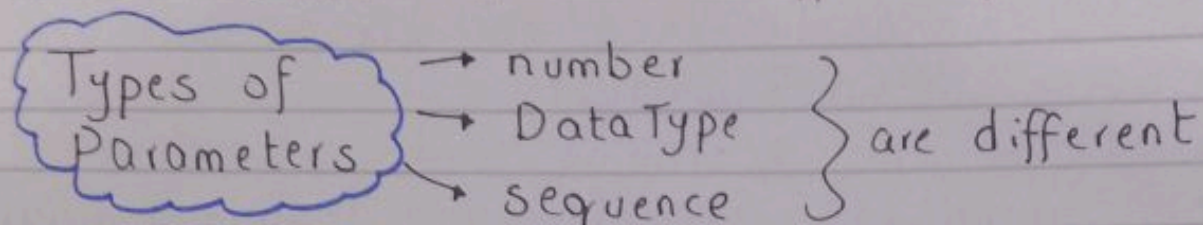 Types of
Parameters
→ number
→ DataType
→ sequence
} are different